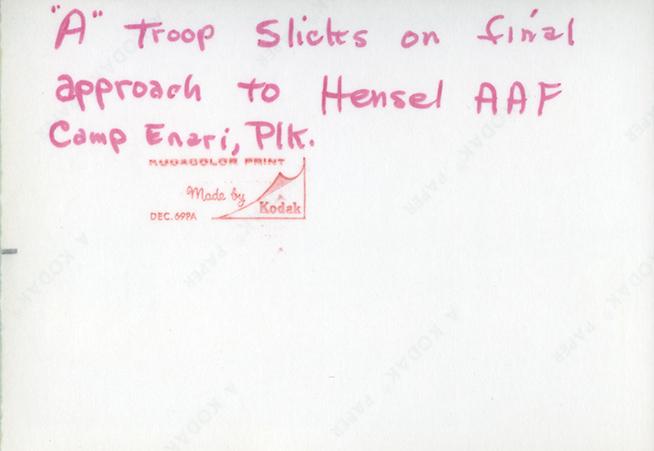 "A" Troop Slicks on final
approach to Hensel AAF
Camp Enari, Plk.
KODACOLOR PRINT
Made by
Kodak
DEC. 69PA
A KODAK PAPER
A KODAK PAPER
A KODAK PAPER
A KODAK PAPER
A KODAK